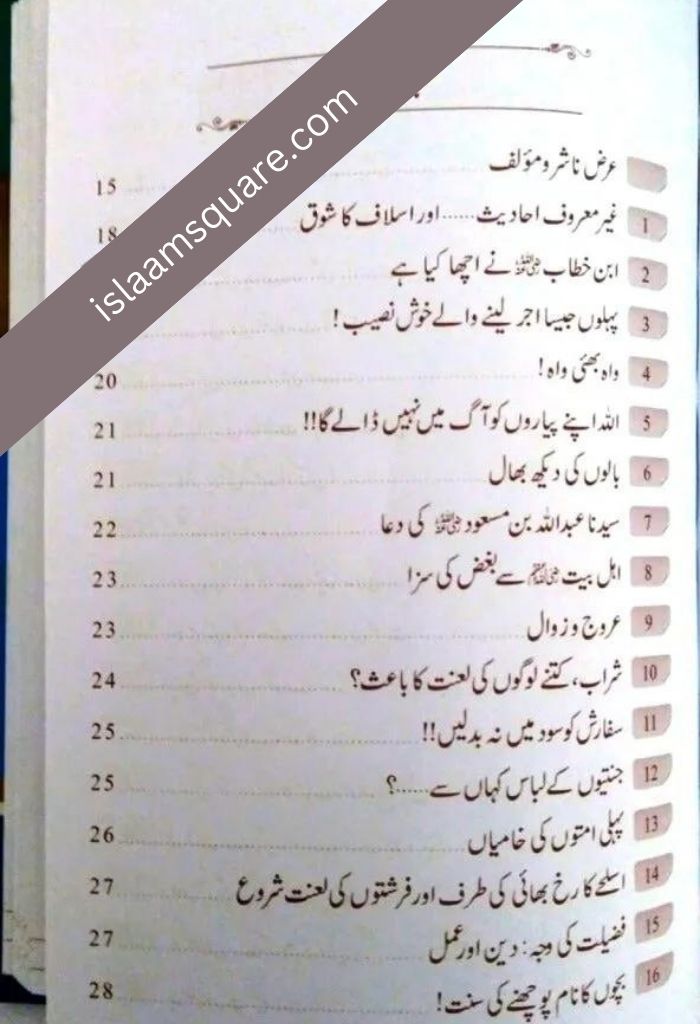 islaamsquare.com
عرض ناشر و مؤلف 15
1 غیر معروف احادیث...... اور اسلاف کا شوق 18
2 ابن خطاب رضی اللہ عنہ نے اچھا کیا ہے
3 پہلوں جیسا اجر لینے والے خوش نصیب!
4 واہ بھئی واہ! 20
5 اللہ اپنے پیاروں کو آگ میں نہیں ڈالے گا!! 21
6 بالوں کی دیکھ بھال 21
7 سیدنا عبداللہ بن مسعود رضی اللہ عنہ کی دعا 22
8 اہل بیت سے بغض کی سزا 23
9 عروج و زوال 23
10 شراب، کتنے لوگوں کی لعنت کا باعث؟ 24
11 سفارش کو سود میں نہ بدلیں!! 25
12 جنتیوں کے لباس کہاں سے......؟ 25
13 پہلی امتوں کی خامیاں 26
14 اسلحے کا رخ بھائی کی طرف اور فرشتوں کی لعنت شروع 27
15 فضیلت کی وجہ: دین اور عمل 27
16 بچوں کا نام پوچھنے کی سنت! 28